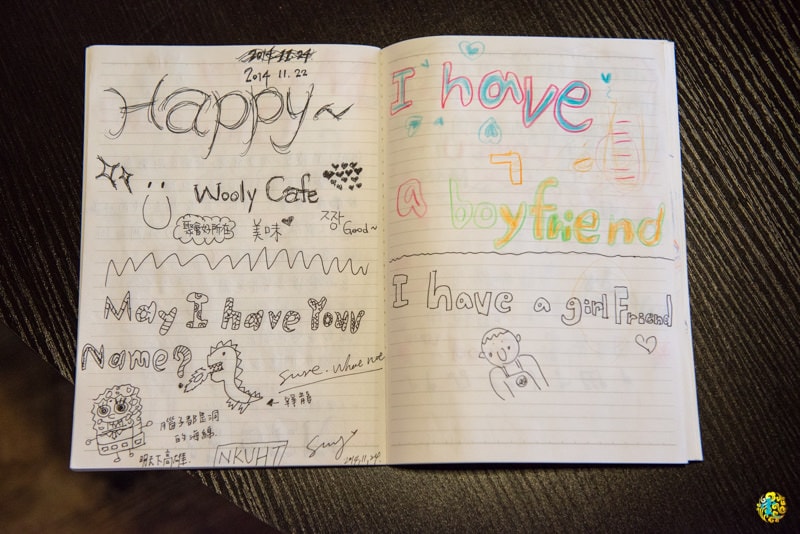 2014 11.24
2014 11.22
Happy~
Wooly Cafe
聚會好所在
美味
짱 Good~
May I have Your
Name?
sure. Whae not
腦子都是洞
的海綿
NKUHT
2014.11.24.
I have
a boyfriend
I have a girl Friend